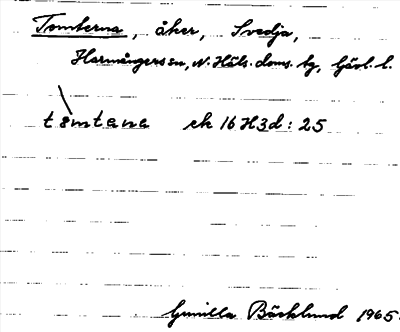 Tomterna, åker, Svedja,
Harmångers sn, N. Häls. doms. tg, Gävl. l.
tåmtana ek 16H3d : 25
Gunilla Bäcklund 1965.